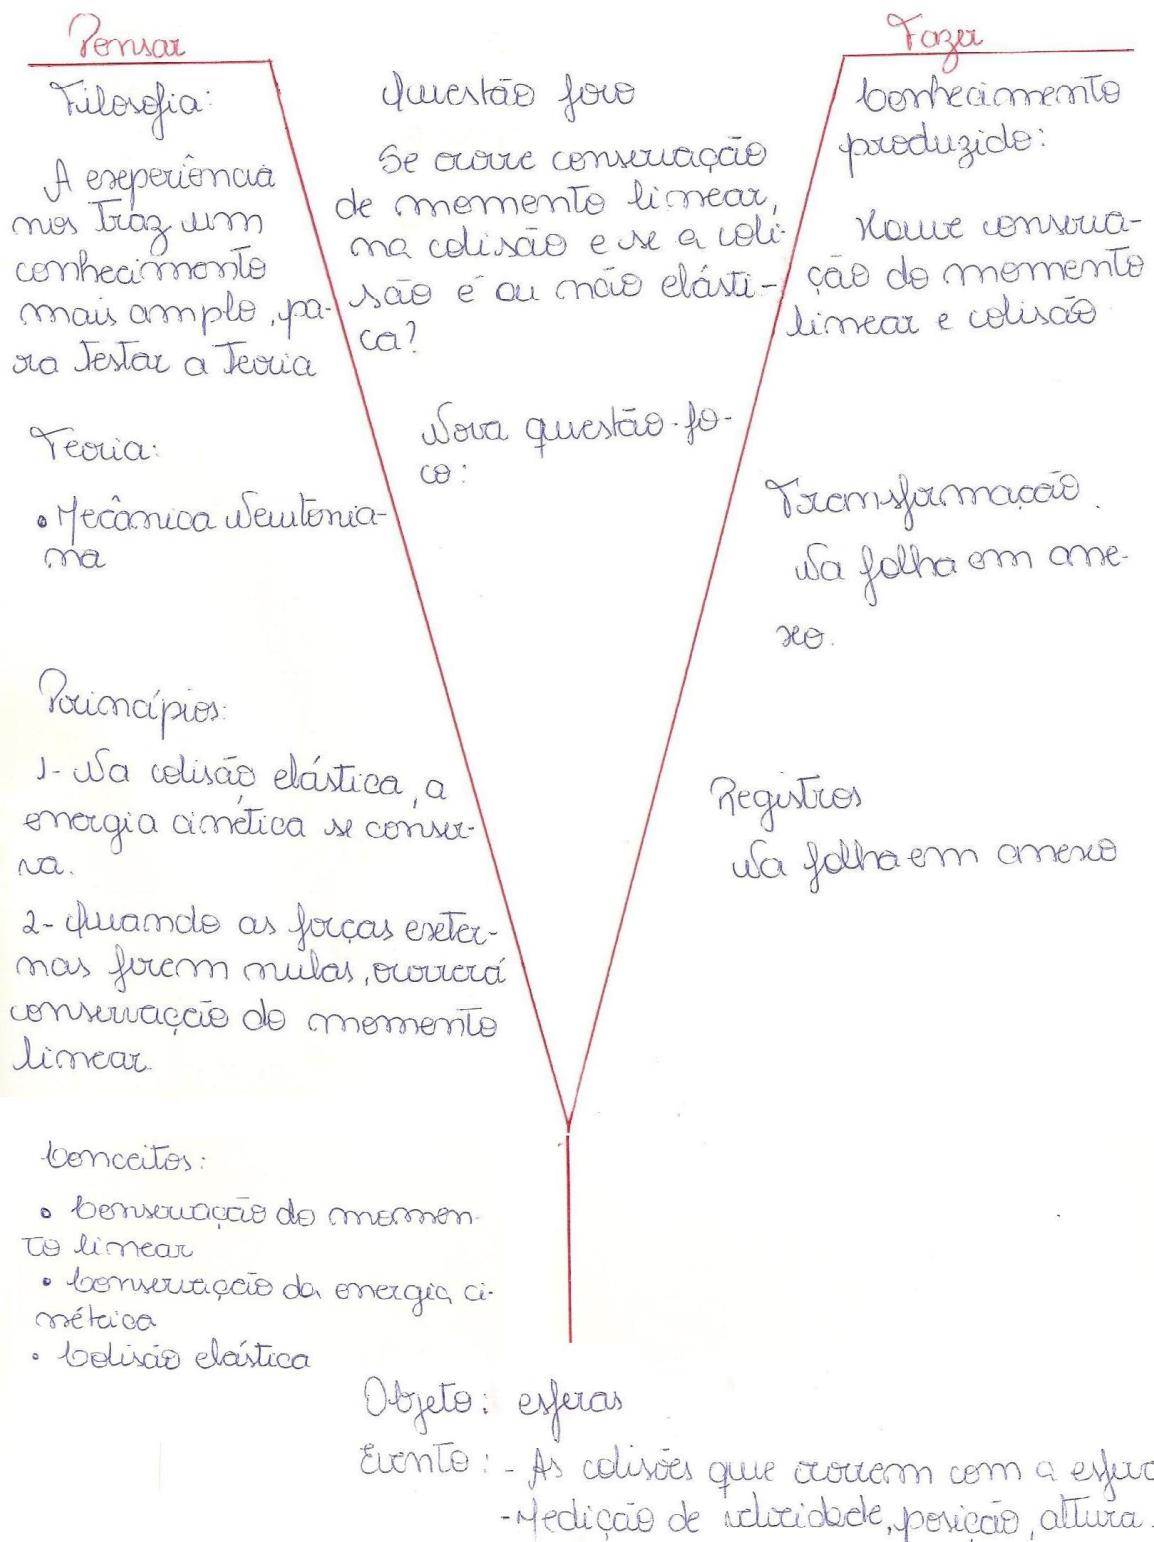 Pensar
Filosofia:
A experiência
nos traz um
conhecimento
mais amplo, pa-
ra testar a teoria
Teoria:
• Mecânica Newtonia-
na
Princípios:
1- Na colisão elástica, a
energia cinética se conser-
va.
2- Quando as forças exter-
nas forem nulas, ocorrerá
conservação do momento
linear.
Conceitos:
• Conservação do momen-
to linear
• Conservação da energia ci-
nética
• Colisão elástica
Questão foco
Se ocorre conservação
de momento linear,
na colisão e se a coli-
são é ou não elásti-
ca?
Nova questão-fo-
co:
Fazer
Conhecimento
produzido:
Houve conserva-
ção do momento
linear e colisão
Transformação.
Na folha em ane-
xo.
Registros
Na folha em anexo
Objeto: esferas
Evento: - As colisões que ocorrem com a esfera
- Medição de velocidade, posição, altura.